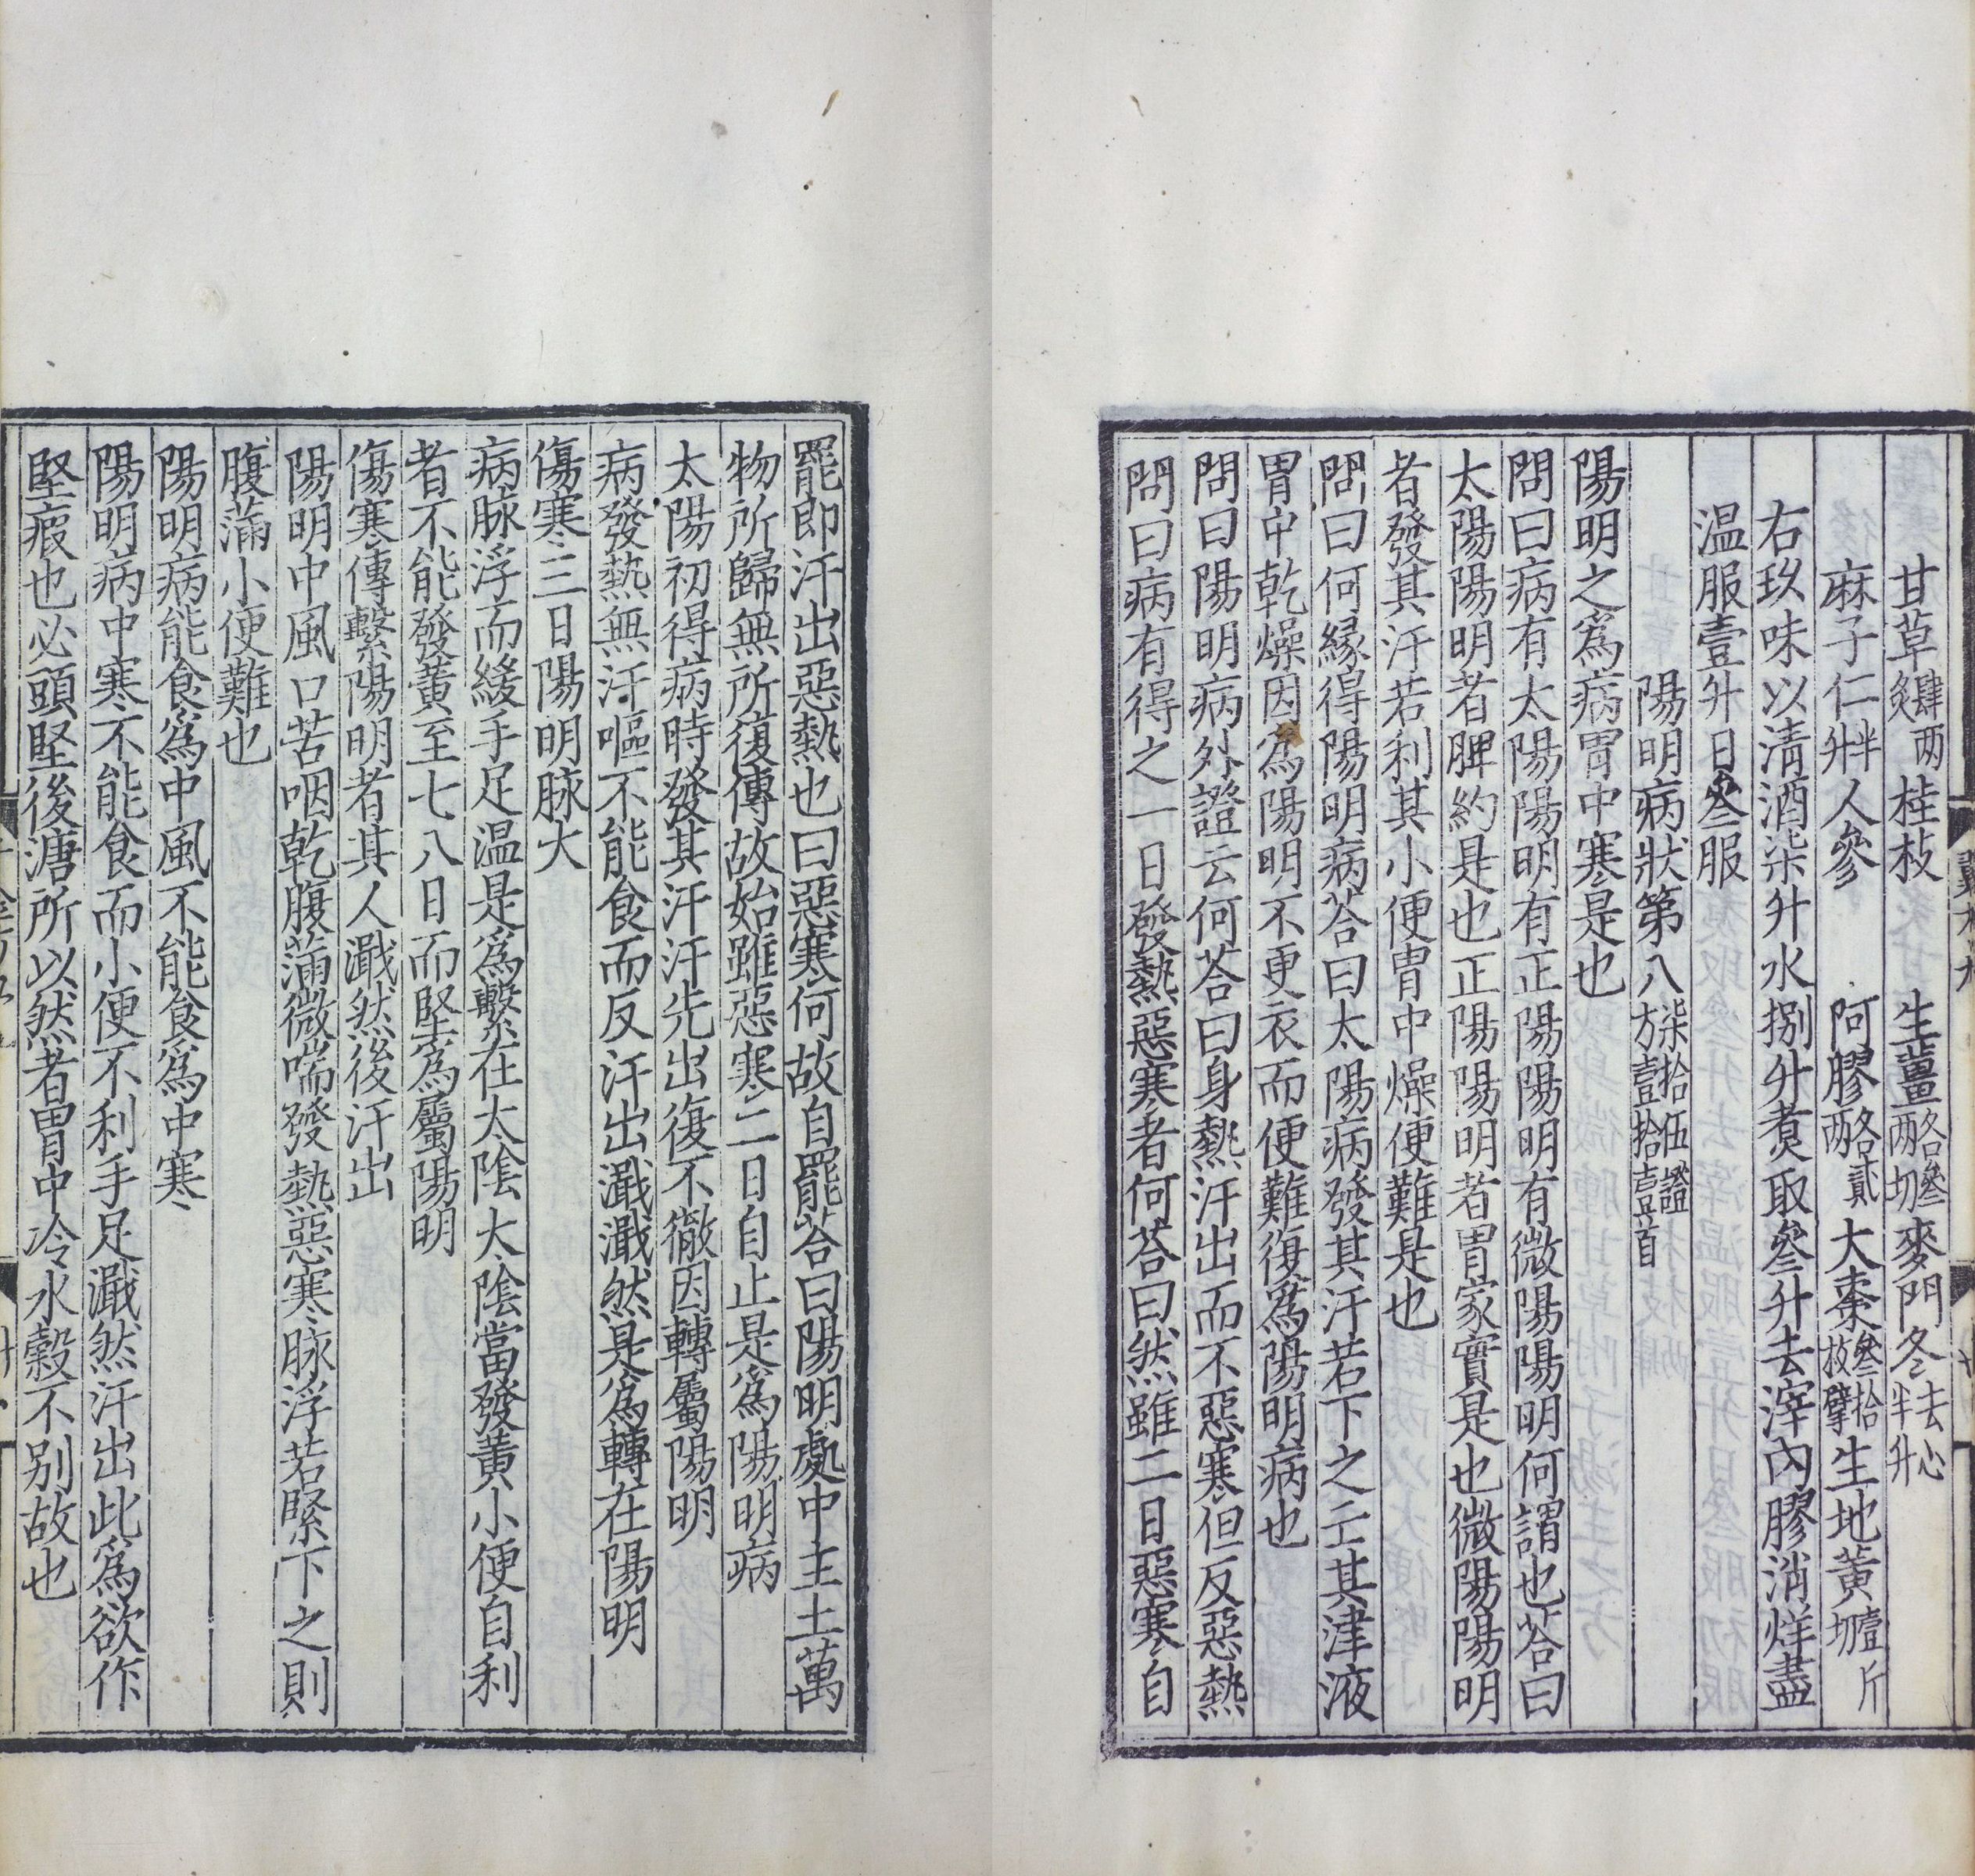 甘草肆两炙桂枝 生薑各叁两切麥門冬去心半升
麻子仁半升人參 阿膠各貳两大棗叁拾枚擘生地黃壹斤切
右玖味以清酒柒升水捌升煑取叁升去滓內膠消烊盡
温服壹升日叁服
陽明病狀第八柒拾伍證方壹拾壹首
陽明之爲病胃中寒是也
問曰病有太陽陽明有正陽陽明有微陽陽明何謂也荅曰
太陽陽明者脾約是也正陽陽明者胃家實是也微陽陽明
者發其汗若利其小便胃中燥便難是也
問曰何緣得陽明病荅曰太陽病發其汗若下之亡其津液
胃中乾燥因爲陽明不更衣而便難復爲陽明病也
問曰陽明病外證云何荅曰身熱汗出而不惡寒但反惡熱
問曰病有得之一日發熱惡寒者何荅曰然雖二日惡寒自
罷即汗出惡熱也曰惡寒何故自罷荅曰陽明處中主土萬
物所歸無所復傳故始雖惡寒二日自止是爲陽明病
太陽初得病時發其汗汗先出復不徹因轉屬陽明
病發熱無汗嘔不能食而反汗出濈濈然是爲轉在陽明
傷寒三日陽明脉大
病脉浮而緩手足温是爲繫在太陰太陰當發黃小便自利
者不能發黃至七八日而堅爲屬陽明
傷寒傳繫陽明者其人濈然後汗出
陽明中風口苦咽乾腹滿微喘發熱惡寒脉浮若緊下之則
腹滿小便難也
陽明病能食爲中風不能食爲中寒
陽明病中寒不能食而小便不利手足濈然汗出此爲欲作
堅瘕也必頭堅後溏所以然者胃中冷水穀不别故也